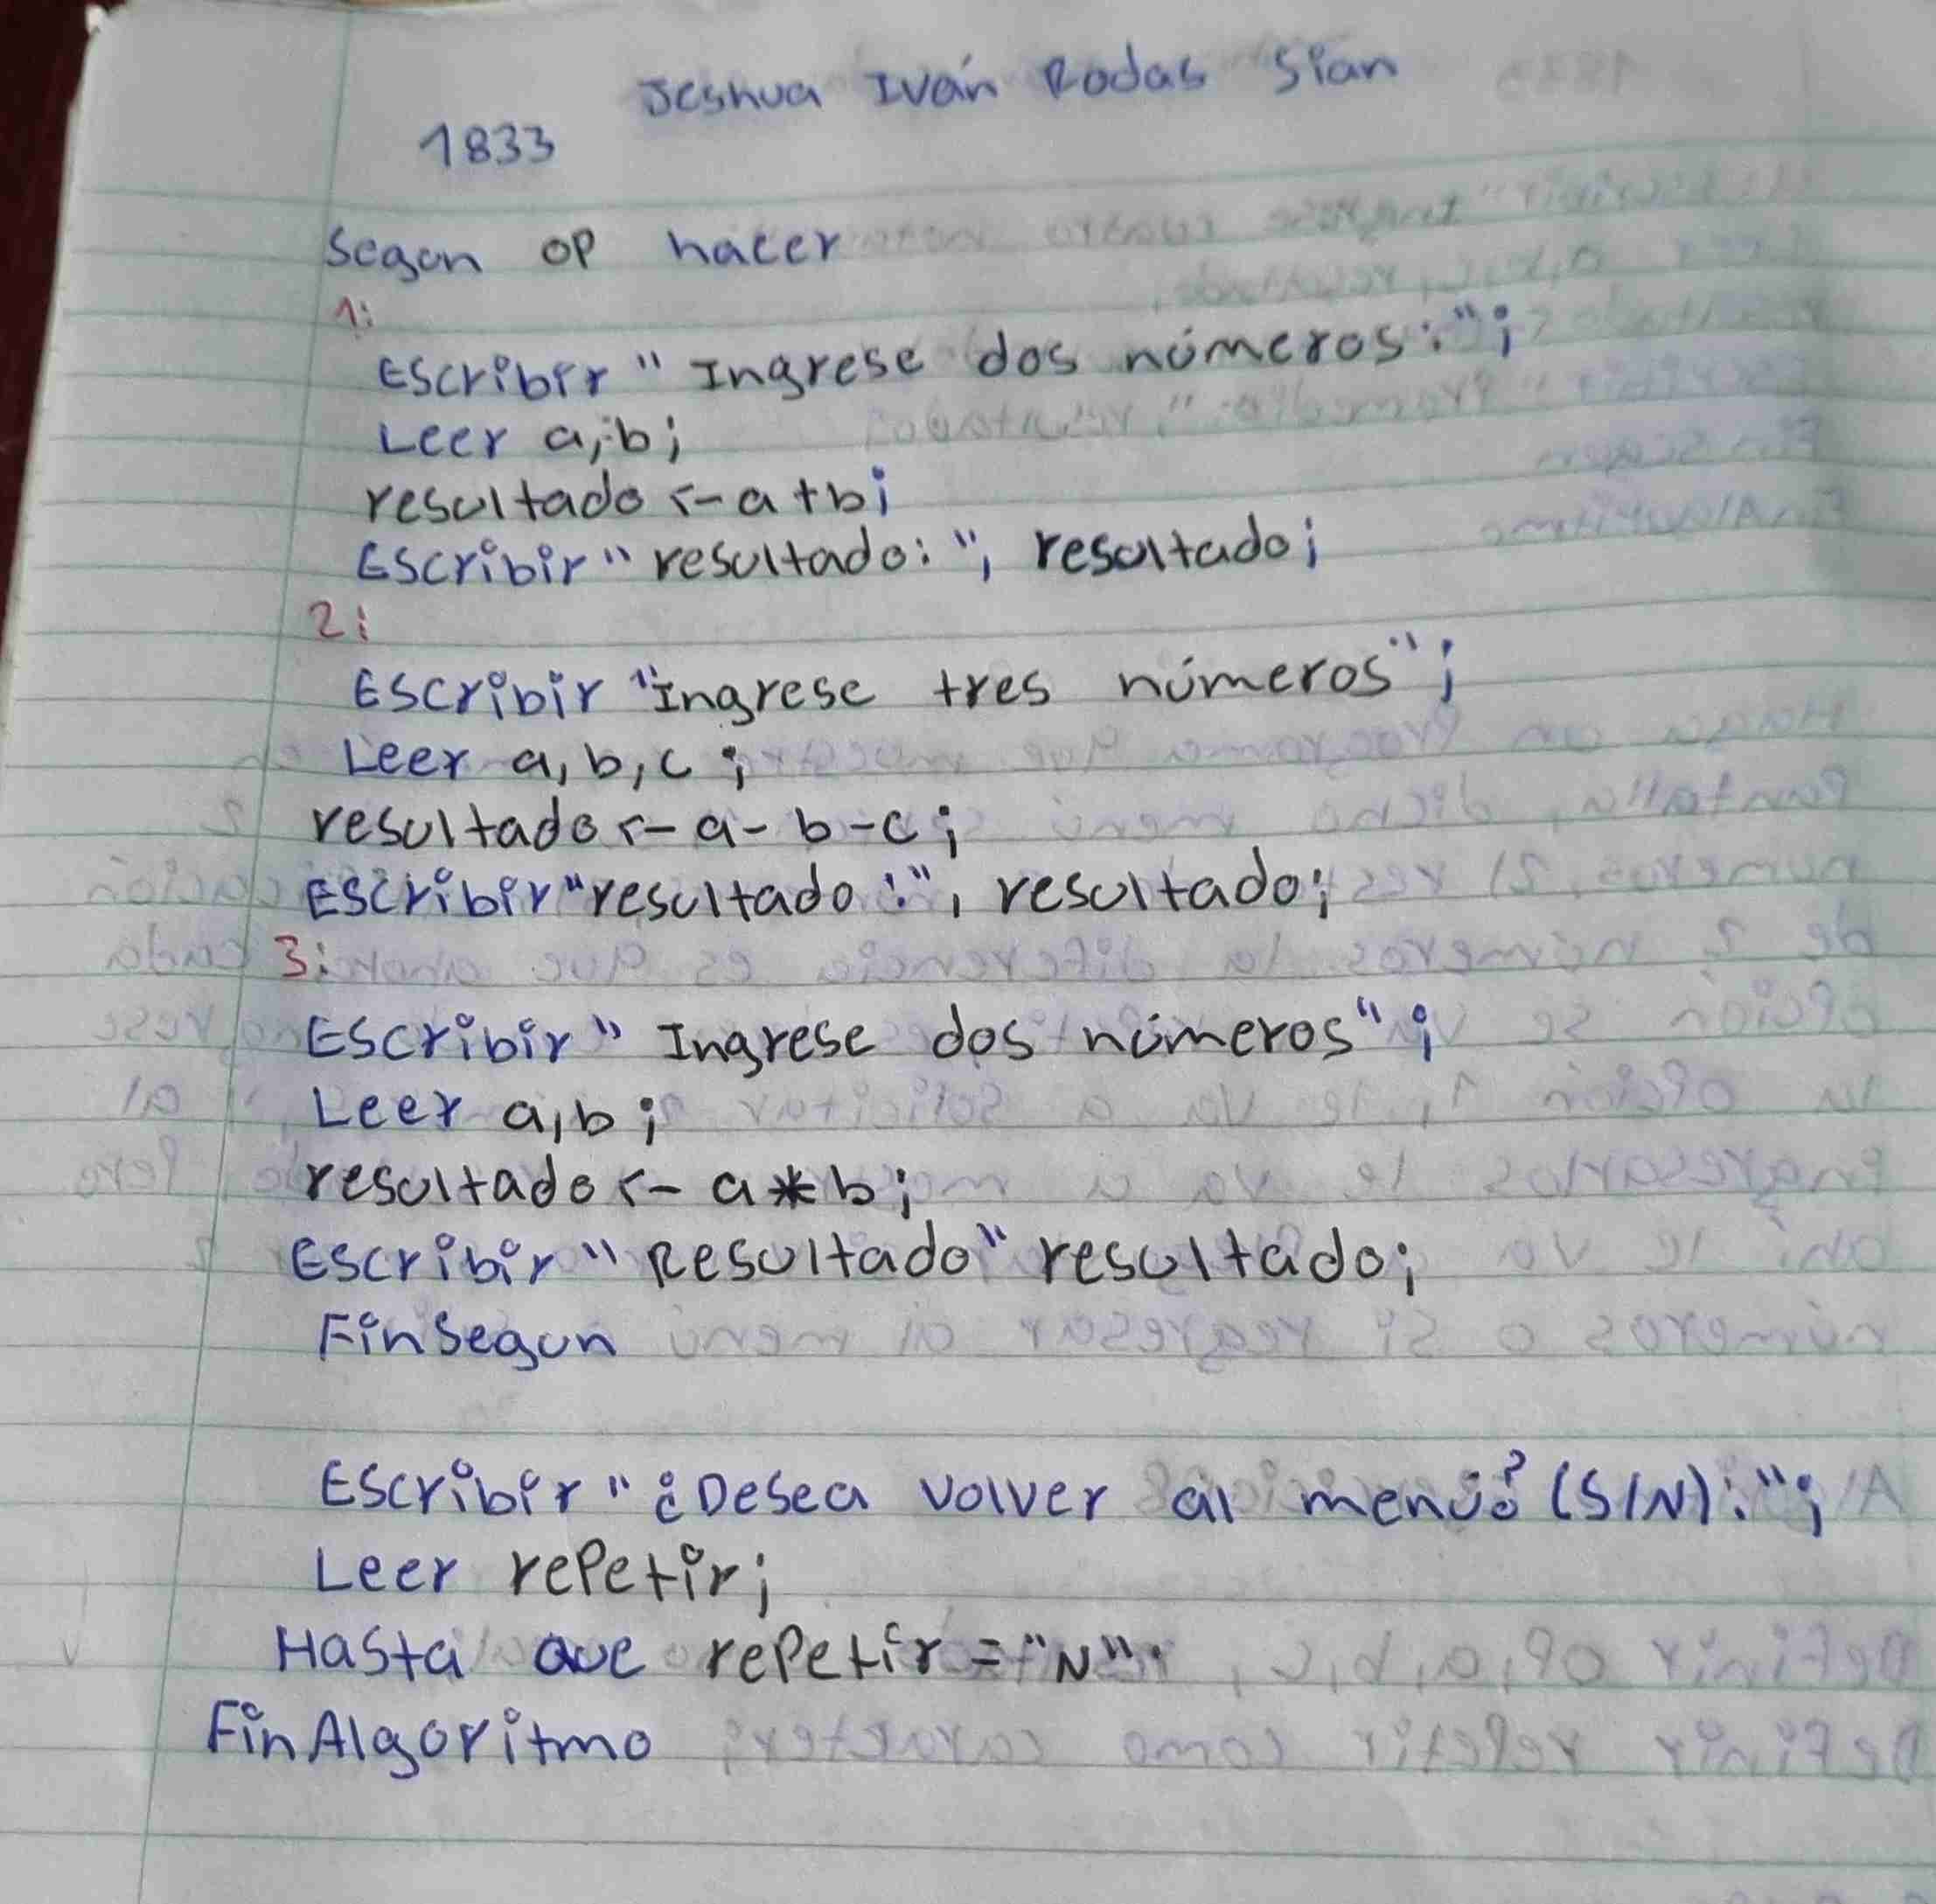 Jeshua Iván Rodas Sian
1833
Segun OP hacer
1:
Escribir "Ingrese dos números:";
Leer a,b;
resultado <- a+b;
Escribir "resultado:", resultado;
2:
Escribir "Ingrese tres números";
Leer a,b,c;
resultado <- a-b-c;
Escribir "resultado:", resultado;
3:
Escribir "Ingrese dos números";
Leer a,b;
resultado <- a*b;
Escribir "Resultado" resultado;
FinSegun
Escribir "¿Desea volver al menú? (S/N):";
Leer repetir;
Hasta que repetir="N".
FinAlgoritmo